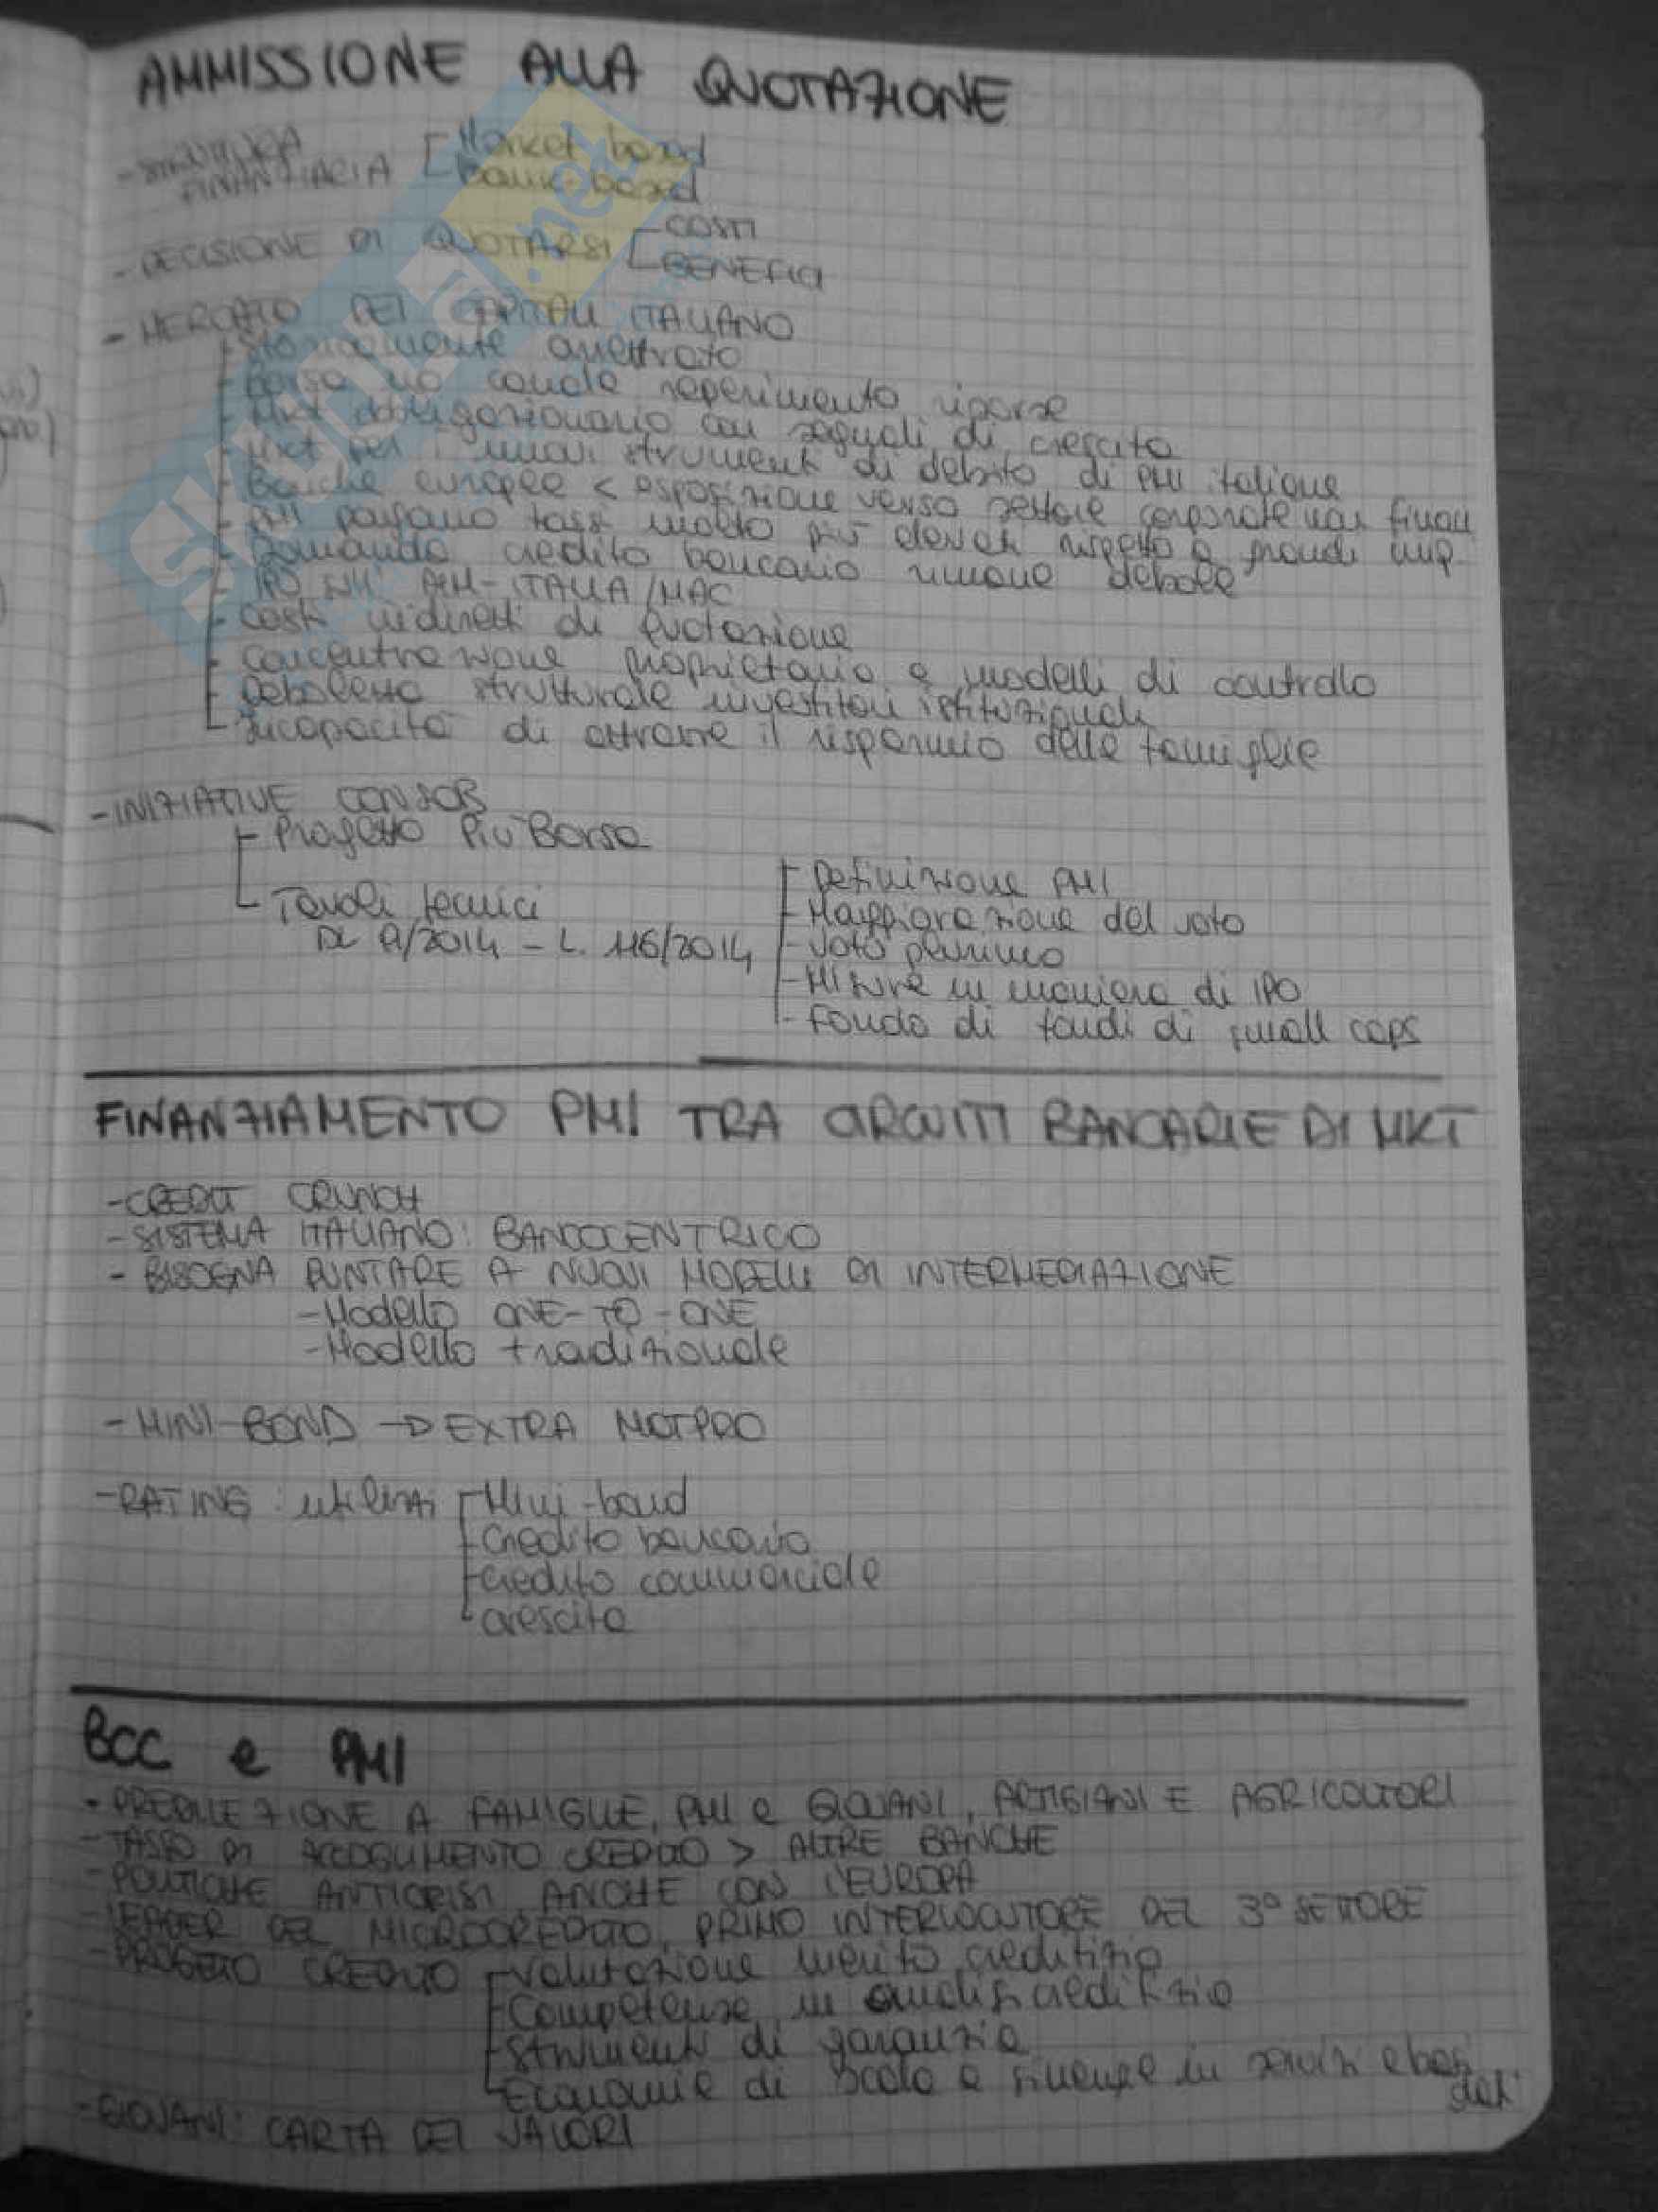 AMMISSIONE ALLA QUOTAZIONE
- STRUTTURA FINANZIARIA
Market based
Bank based
- DECISIONE DI QUOTARSI
COSTI
BENEFICI
- MERCATO DEI CAPITALI ITALIANO
- Storicamente arretrato
- Borsa no canale reperimento risorse
- Mkt obbligazionario con segnali di crescita
- Mkt per i nuovi strumenti di debito di PMI italiane
- Banche europee < esposizione verso settore corporate non finan
- PMI pagano tassi molto più elevati rispetto a grandi imp.
- Domanda credito bancario rimane debole
- IPO sull' AIM-ITALIA/MAC
- Costi indiretti di quotazione
- Concentrazione proprietaria e modelli di controllo
- Debolezza strutturale investitori istituzionali
- Incapacità di attrarre il risparmio delle famiglie
- INIZIATIVE CONSOB
- Progetto Più Borsa
- Tavoli tecnici
DL 91/2014 - L. 116/2014
- Definizione PMI
- Maggiorazione del voto
- Voto plurimo
- Misure in maniera di IPO
- Fondo di fondi di small caps
FINANZIAMENTO PMI TRA CIRCUITI BANCARI E DI MKT
- CREDIT CRUNCH
- SISTEMA ITALIANO: BANCOCENTRICO
- BISOGNA PUNTARE A NUOVI MODELLI DI INTERMEDIAZIONE
- Modello ONE-TO-ONE
- Modello tradizionale
- MINI-BOND → EXTRA MOTPRO
- RATING: utilizzi
- Mini-bond
- Credito bancario
- Credito commerciale
- Crescita
BCC e PMI
- PREDILEZIONE A FAMIGLIE, PMI e GIOVANI, ARTIGIANI E AGRICOLTORI
- TASSO DI ACCOGLIMENTO CREDITO > ALTRE BANCHE
- POLITICHE ANTICRISI, ANCHE CON L'EUROPA
- LEADER DEL MICROCREDITO, PRIMO INTERLOCUTORE DEL 3° SETTORE
- PROGETTO CREDITO
- Valutazione merito creditizio
- Competenze in analisi creditizia
- Strumenti di garanzia
- Economie di scala e sinergie in servizi
- GIOVANI: CARTA DEI VALORI
SKUOLA.net